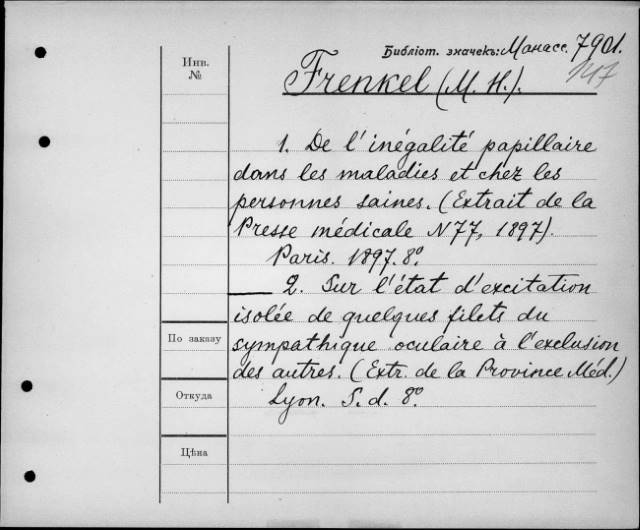 Библіот. значекъ: Манасс. 7901.
147
Инв.
№
Frenkel (M. H.).
1. De l'inégalité papillaire
dans les maladies et chez les
personnes saines. (Extrait de la
Presse médicale N 77, 1897).
Paris. 1897. 8°.
2. Sur l'état d'excitation
isolée de quelques filets du
По заказу
sympathique oculaire à l'exclusion
des autres. (Extr. de la Province Méd.)
Откуда
Lyon. S. d. 8°.
Цѣна